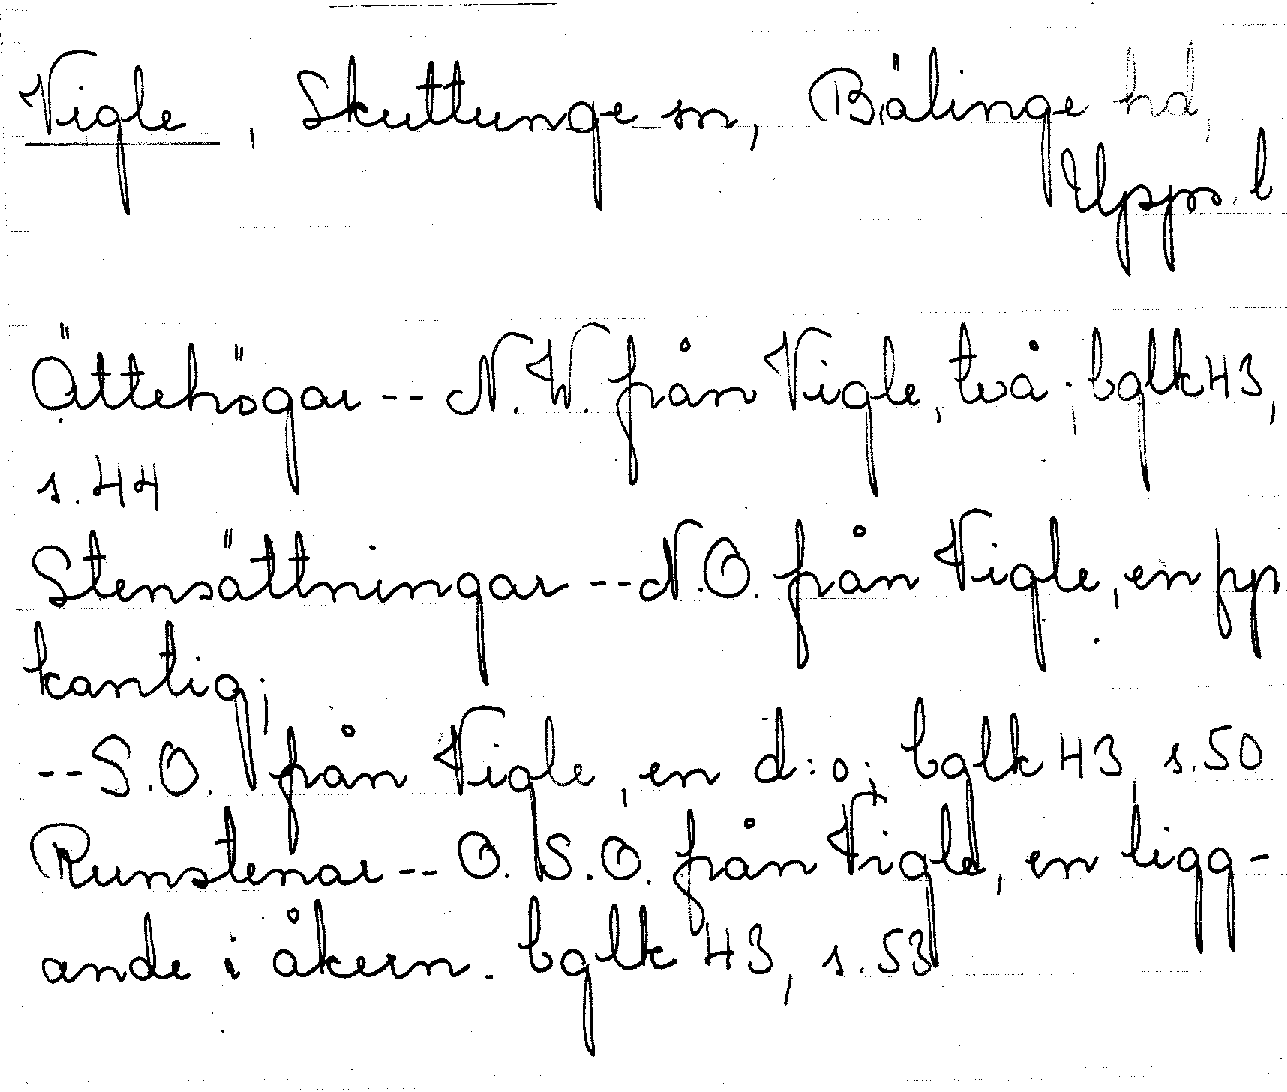 Vigle, Skuttunge sn, Bälinge hd,
Upps. l
Ättehögar -- N.W. från Vigle, två; bglk 43,
s. 44
Stensättningar -- N.O. från Vigle, en
kantig;
-- S.O. från Vigle, en d:o; bglk 43, s. 50
Runstenar -- O.S.O. från Vigle, en ligg-
ande i åkern. bglk 43, s. 53